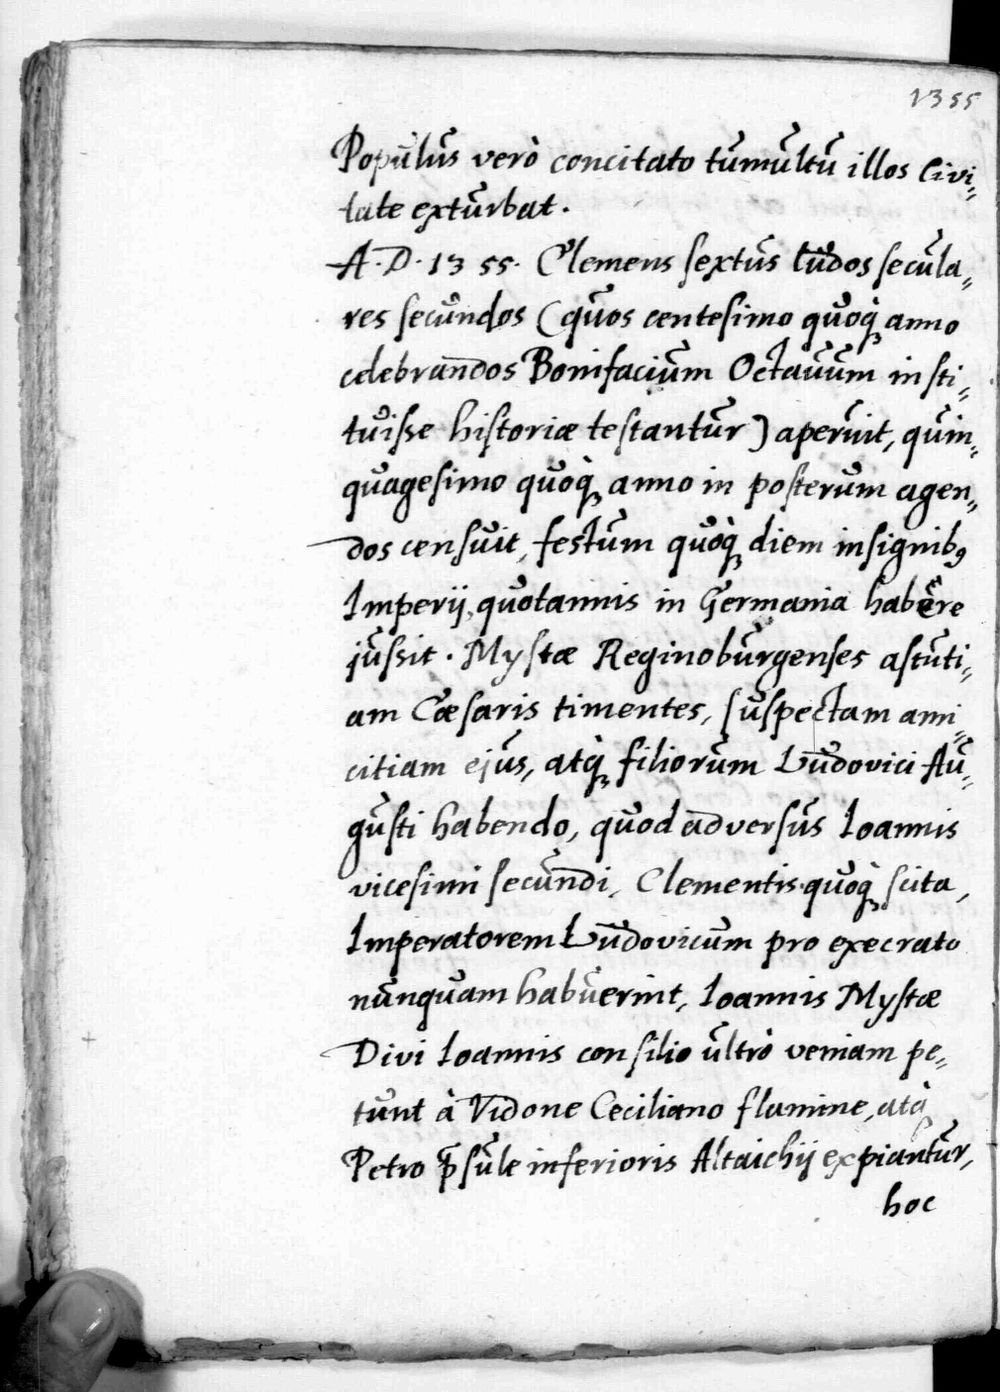 1355
Populus verò concitato tumultu illos Civi-
tate exturbat.
A. D. 1355. Clemens sextus ludos secula-
res secundos (quos centesimo quoq̀ꝫ anno
celebrandos Bonifacium Octauum insti-
tuisse historiæ testantur) aperuit, quin-
quagesimo quoq̀ꝫ anno in posterum agen-
dos censuit, festum quoq̀ꝫ diem insignibꝰ
Imperij quotannis in Germania habere
jussit. Mystæ Reginoburgenses astuti-
am Cæsaris timentes, suspectam ami-
citiam ejus, atq̀ꝫ filiorum Ludovici Au-
gusti habendo, quod adversus Ioannis
vicesimi secundi, Clementis quoq̀ꝫ scita,
Imperatorem Ludovicum pro execrato
nunquam habuerint, Ioannis Mystæ
Divi Ioannis consilio ultrò veniam pe-
tunt à Vidone Ceciliano flamine, atq̀
Petro p̄sule inferioris Altaichij expiantur,
hoc